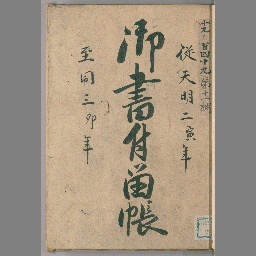 從天明二寅年
御書付留帳
至同三卯年